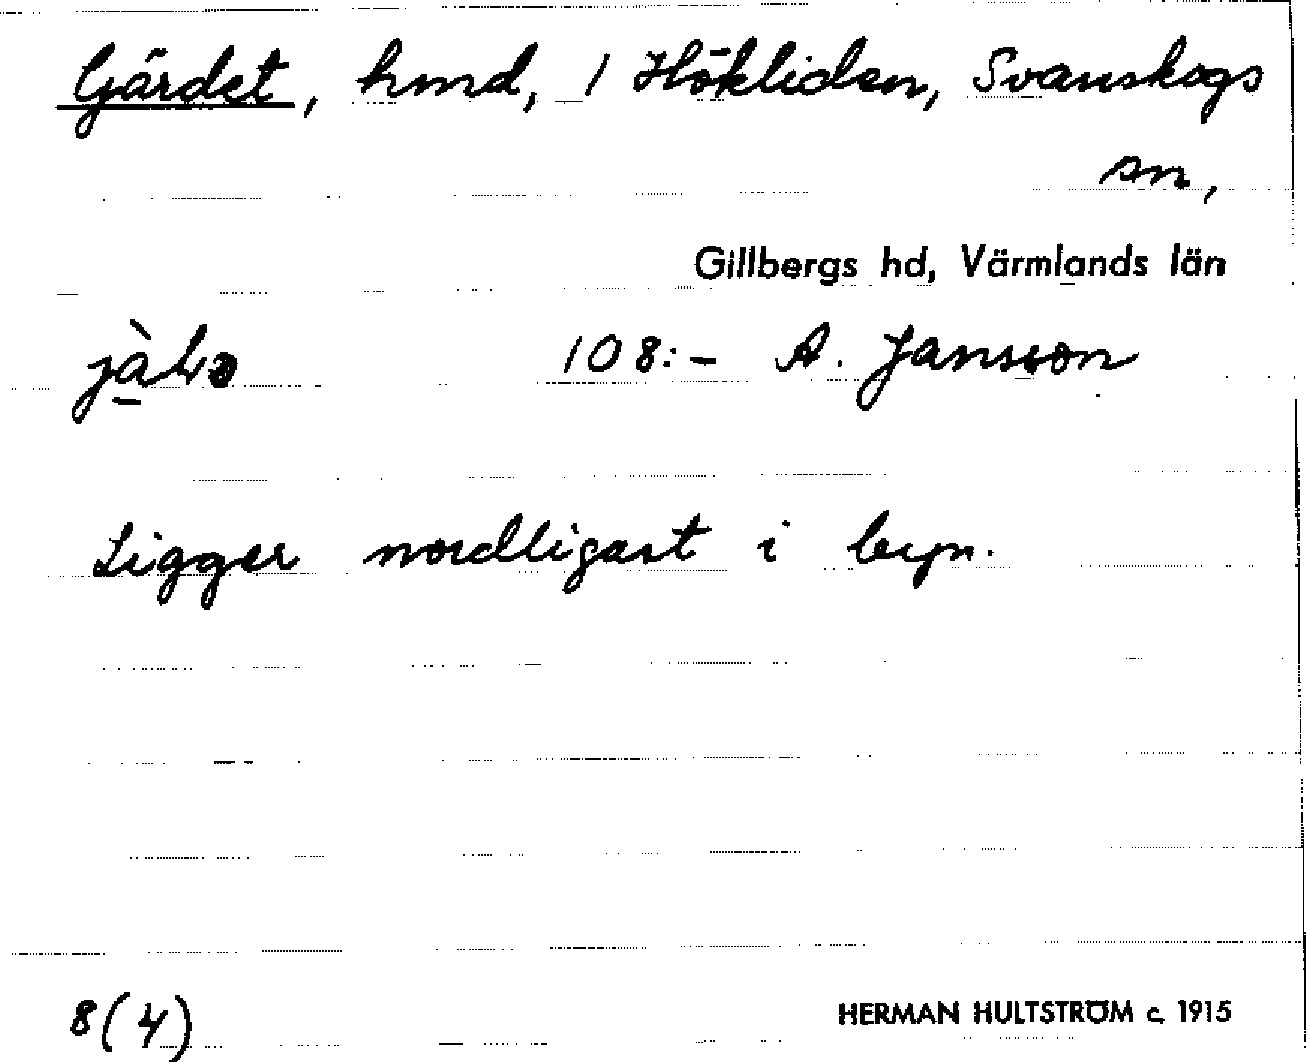 Gärdet, hmd, 1 Hökliden, Svanskogs
sn,
Gillbergs hd, Värmlands län
108:- A. Jansson
Ligger nordligast i byn.
8(4)
HERMAN HULTSTRÖM c. 1915